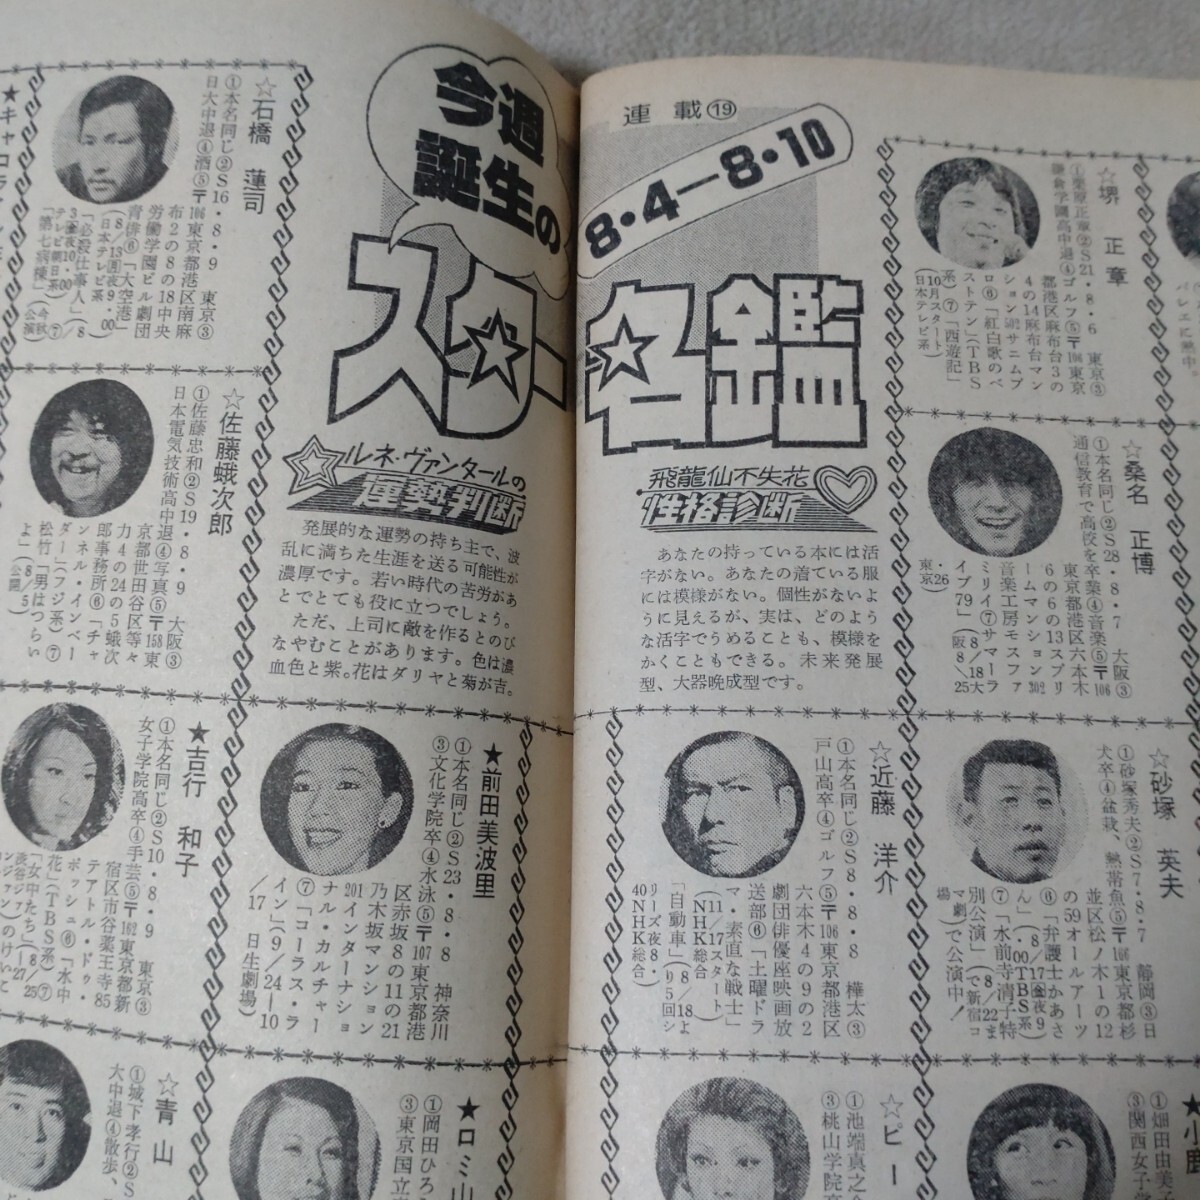 連載⑲
8・4―8・10
今週
誕生の
スター名鑑
飛龍仙不失花
性格診断
あなたの持っている本には活
字がない。あなたの着ている服
には模様がない。個性がないよ
うに見えるが、実は、どのよう
な活字でうめることも、模様を
かくこともできる。未来発展
型、大器晩成型です。
ルネ・ヴァンタールの
運勢判断
発展的な運勢の持ち主で、波
乱に満ちた生涯を送る可能性が
濃厚です。若い時代の苦労があ
とでとても役に立つでしょう。
ただ、上司に敵を作るとのび
なやむことがあります。色は濃
血色と紫。花はダリヤと菊が吉。
バレエに熱中。
☆堺 正章
①栗原正章②S21・8・6 東京③
鎌倉学園高中退④ゴルフ⑤〒106東京
都港区麻布台3の
4の14麻布台マン
ション502サニムプ
ロ⑥「紅白歌のベ
ストテン」(TBS
系)⑦「西遊記」
(10月スタート
日本テレビ系)
☆桑名 正博
①本名同じ②S28・8・7 大阪③
通信教育で高校を卒業④音楽⑤〒106
東京都港区六本木
6の6の13スプリ
ームマンション302
音楽工房モスファ
ミリイ⑦サマーラ
イブ79」(8/18大
阪8/25
・26
東京)
☆砂塚 英夫
①砂塚秀夫②S7・8・7 静岡③日
大卒④盆栽、熱帯魚⑤〒166東京都杉
並区松ノ木1の12
の59オールアーツ
⑥「弁護士かあさ
ん」(8/17(金)夜9
・00TBS系)
⑦「水前寺清子特
別公演」(8/22ま
で新宿コ
マ劇)で公演中!
☆近藤 洋介
①本名同じ②S8・8・8 樺太③
戸山高卒④ゴルフ⑤〒106東京都港区
六本木4の9の2
劇団俳優座映画放
送部⑥「土曜ドラ
マ・素直な戦士」
(11/17スタート
NHK総合)
「自動車」(8/18よ
り5回シ
リーズ夜8・
40NHK総合)
★前田美波里
①本名同じ②S23・8・8 神奈川
③文化学院卒④水泳⑤〒107東京都港
区赤坂8の11の21
乃木坂マンション
201インターナショ
ナル・カルチャー
⑦「コーラス・ラ
イン」(9/24―10
/17 日生劇場)
☆石橋 蓮司
①本名同じ②S16・8・9 東京③
日大中退④酒⑤〒106東京都港区南麻
布2の8の18中央
労働学園ビル劇団
青俳⑥「大空港」
(8/13(月)夜9・00
日本テレビ系)
「必殺仕事人」(8/
3(金)夜10・00
テレビ朝日系)⑦
「第七病棟」(今秋
公演)
☆佐藤蛾次郎
①佐藤忠和②S19・8・9 大阪③
日本電気技術高中退④写真⑤〒158東
京都世田谷区等々
力4の24の5蛾次
郎事務所⑥「チャ
ンネル・インベー
ダー」(フジ系)⑦
松竹「男はつらい
よ」(8/5
公開)
★吉行 和子
①本名同じ②S10・8・9 東京③
女子学院高卒④手芸⑤〒162東京都新
宿区市谷薬王寺85
テアトル・ドゥ・
ポッシュ⑥「水中
花」(TBS系)⑦
「女中たち」(8/25
―27
渋谷ジァン
ジァン)のけいこ
★キャロライン
☆ピー
①池端真之
③桃山学院高
★小鹿
①畑田由美子
③関西女子
★ロミ山
①岡田ひろ
③東京国立
☆青山
①城下孝行②S
大中退④散歩、